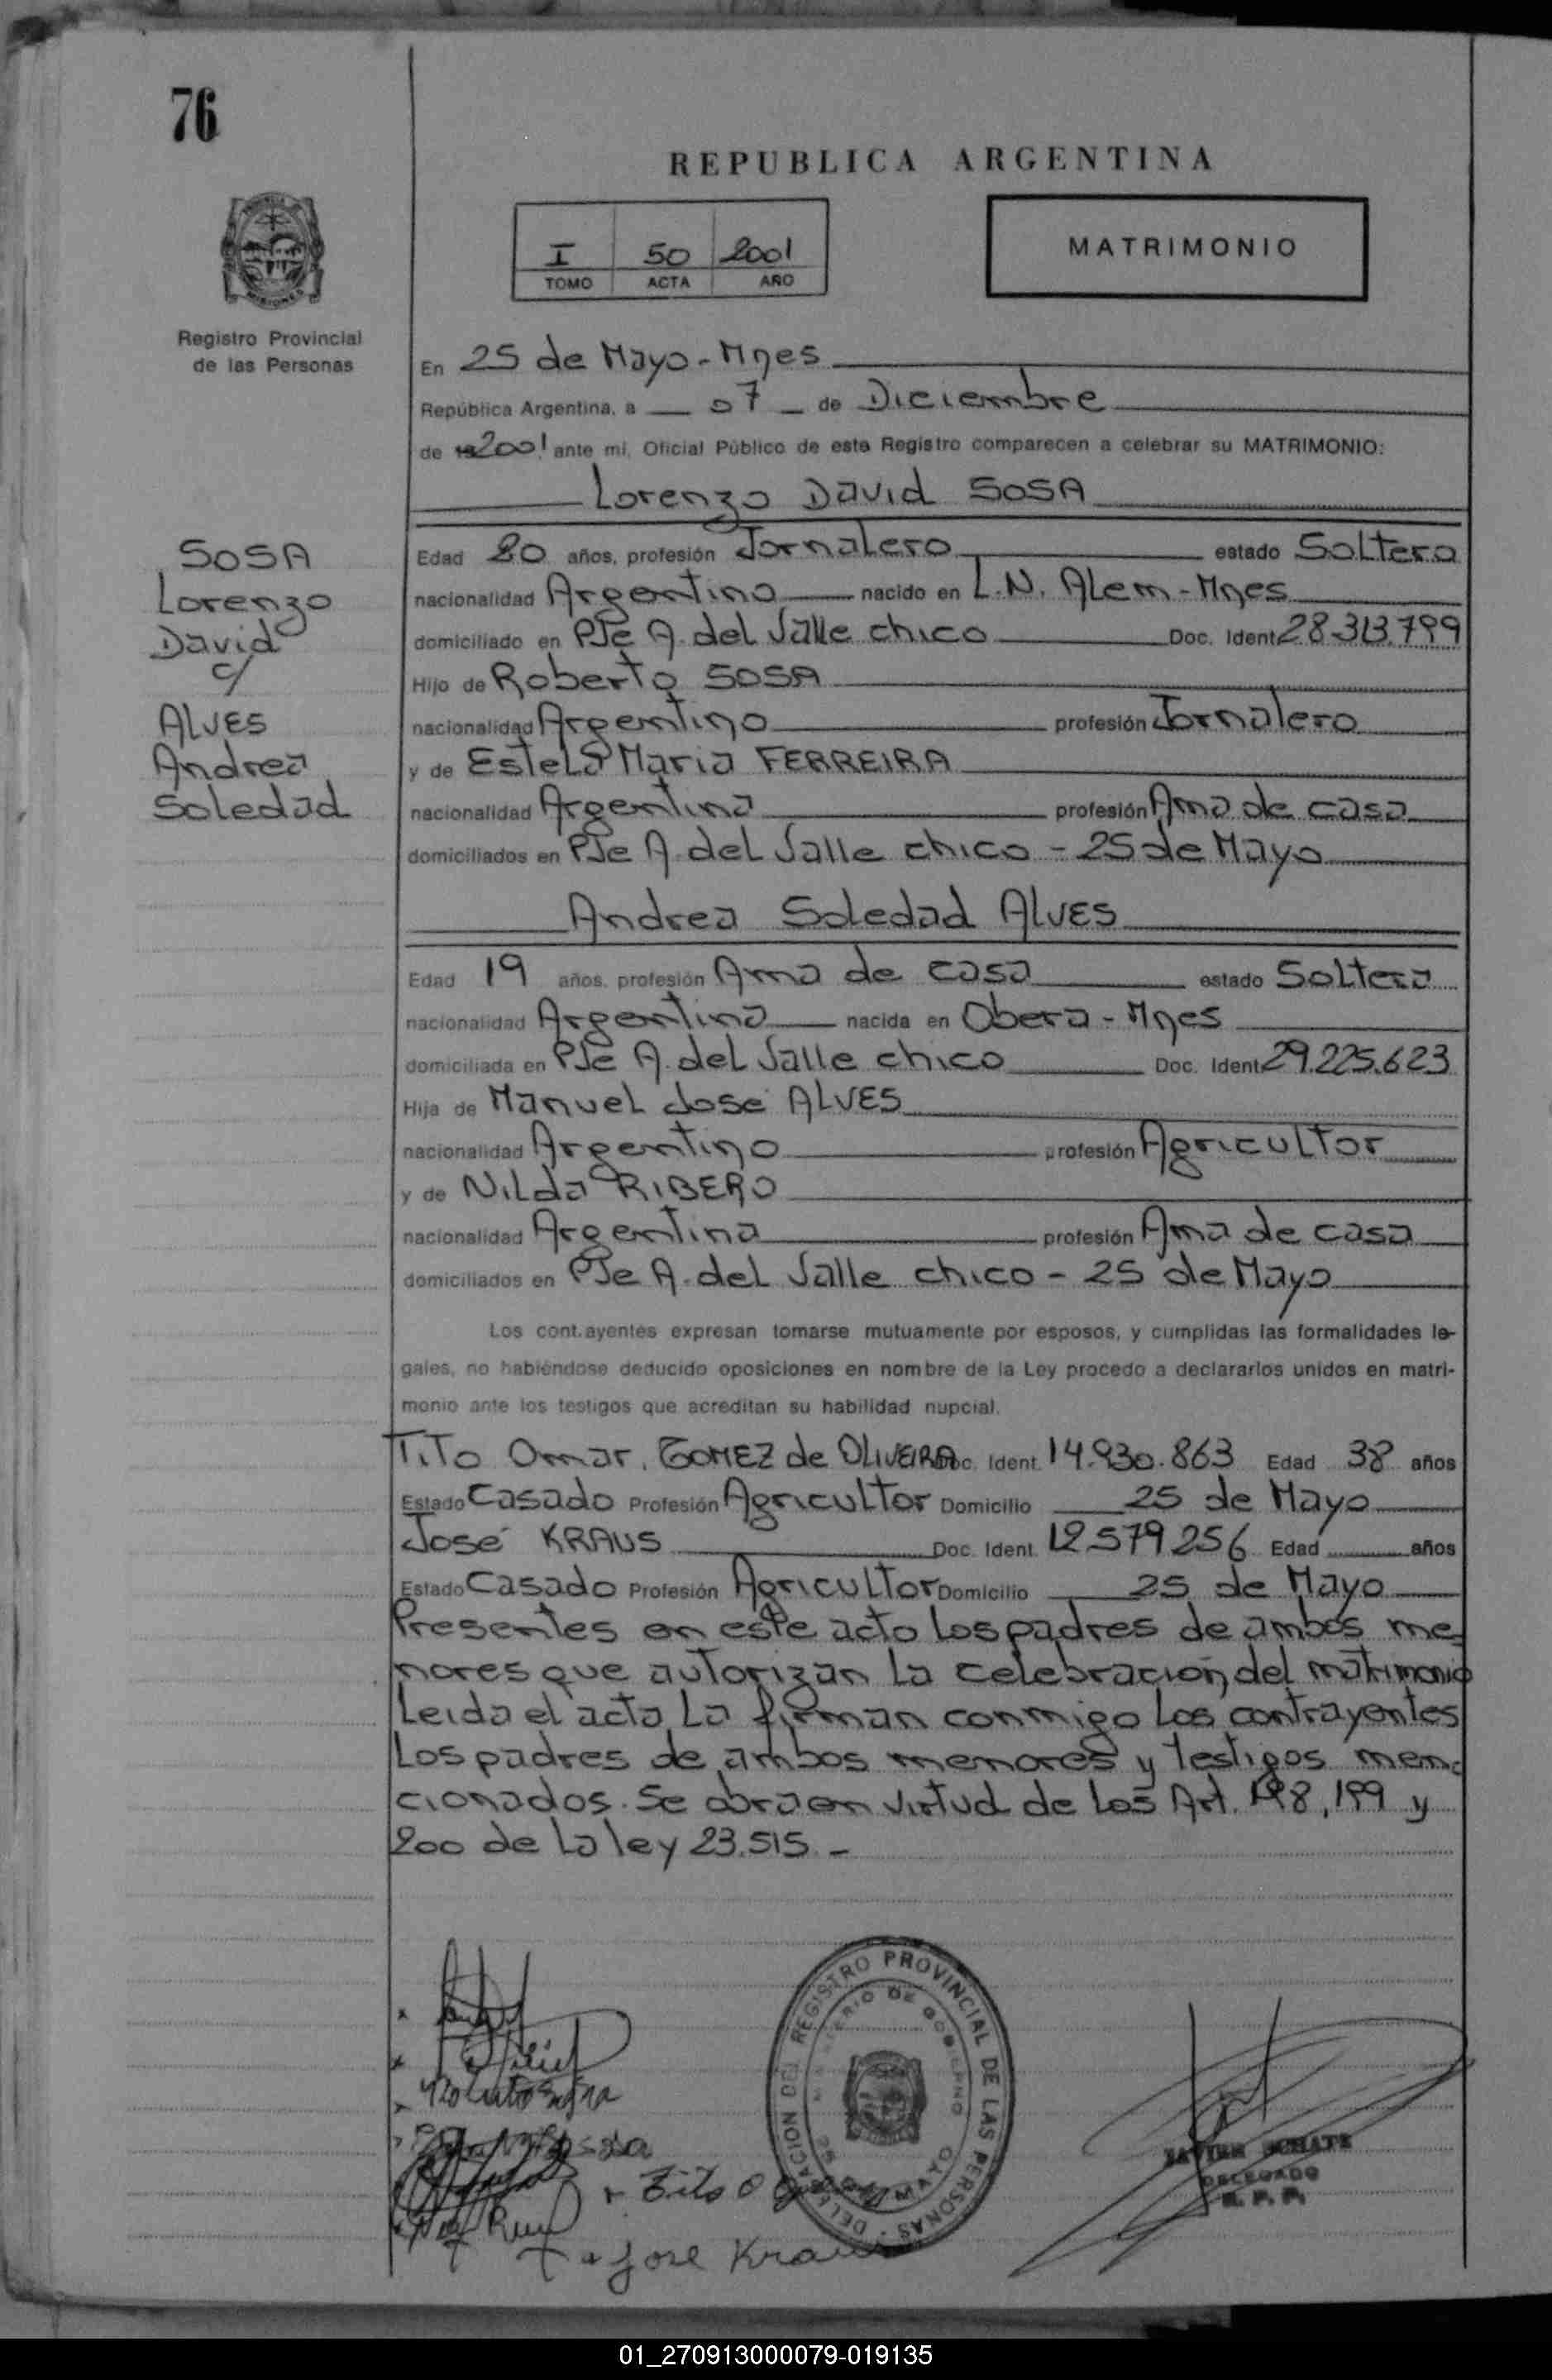 76
REPUBLICA ARGENTINA
I 50 2001
TOMO ACTA AÑO
MATRIMONIO
Registro Provincial
de las Personas
En 25 de Mayo - Mnes
República Argentina, a 07 de Diciembre
de 2001 ante mi, Oficial Público de este Registro comparecen a celebrar su MATRIMONIO:
Lorenzo David SOSA
SOSA
Lorenzo
David
c/
ALVES
Andrea
Soledad
Edad 20 años, profesión Jornalero estado Soltero
nacionalidad Argentino nacido en L.N. Alem - Mnes
domiciliado en PJe A. del Valle chico Doc. Ident. 28.313.799
Hijo de Roberto SOSA
nacionalidad Argentino profesión Jornalero
y de Estela Maria FERREIRA
nacionalidad Argentina profesión Ama de casa
domiciliados en PJe A. del Valle chico - 25 de Mayo
Andrea Soledad ALVES
Edad 19 años, profesión Ama de casa estado Soltera
nacionalidad Argentina nacida en Obera - Mnes
domiciliada en PJe A. del Valle chico Doc. Ident. 29.225.623
Hija de Manuel José ALVES
nacionalidad Argentino profesión Agricultor
y de Nilda RIBERO
nacionalidad Argentina profesión Ama de casa
domiciliados en PJe A. del Valle chico - 25 de Mayo
Los cont.ayentes expresan tomarse mutuamente por esposos, y cumplidas las formalidades le-
gales, no habiéndose deducido oposiciones en nombre de la Ley procedo a declararlos unidos en matri-
monio ante los testigos que acreditan su habilidad nupcial.
Tito Omar. GOMEZ de OLIVEIRA Doc. Ident. 14.930.863 Edad 38 años
Estado Casado Profesión Agricultor Domicilio 25 de Mayo
José KRAUS Doc. Ident. 12.579.256 Edad años
Estado Casado Profesión Agricultor Domicilio 25 de Mayo
Presentes en este acto los padres de ambos me-
nores que autorizan la celebración del matrimonio
Leida el acta La firman conmigo los contrayentes
Los padres de ambos menores y testigos men-
cionados. Se obra en virtud de los Art. 198, 199 y
200 de la ley 23.515. -
DELEGACION DEL REGISTRO PROVINCIAL DE LAS PERSONAS
MINISTERIO DE GOBIERNO
25 DE MAYO
DELEGADO
R. P. P.
Tito O
Jose Kraus
01_270913000079-019135